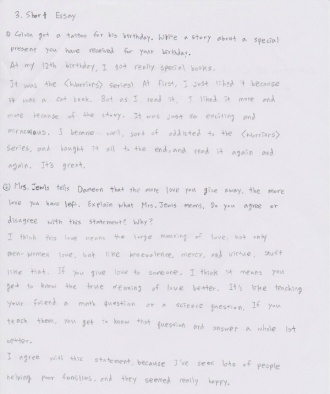 3. Short Essay
① Gilson got a tattoo for his birthday. Write a story about a special
present you have received for your birthday.
At my 12th birthday, I got really special books.
It was the <Warriors> series! At first, I just liked it because
it was a cat book. But as I read it, I liked it more and
more because of the story. It was just so exciting and
miraculous. I became well, sort of addicted to the <Warriors>
series, and bought it all to the end, and read it again and
again. It's great.
② Mrs. Jewls tells Dameon that the more love you give away, the more
love you have left. Explain what Mrs. Jewls means. Do you agree or
disagree with this statement? Why?
I think this love means the large meaning of love, not only
men-women love, but like benevolence, mercy, and virtue, stuff
like that. If you give love to someone, I think it means you
get to know the true meaning of love better. It's like teaching
your friend a math question or a science question. If you
teach them, you get to know that question and answer a whole lot
better.
I agree with this statement, because I've seen lots of people
helping poor families, and they seemed really happy.